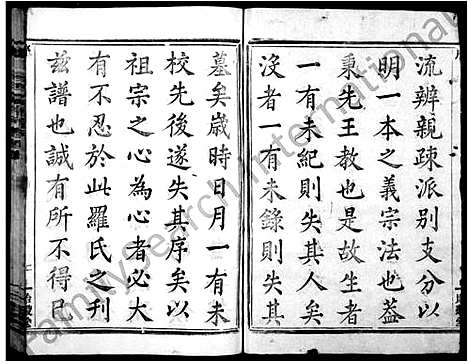 流辨親疎派別支分以
明一本之義宗法也葢
秉先王教也故生者
一有未紀則失其人矣
沒者一有未錄則失其
墓矣歲時日月一有未
校先後遂失其序矣以
祖宗之心為心者必大
有不忍於此羅氏之刋
兹譜也誠有所不得已
Familysearch International